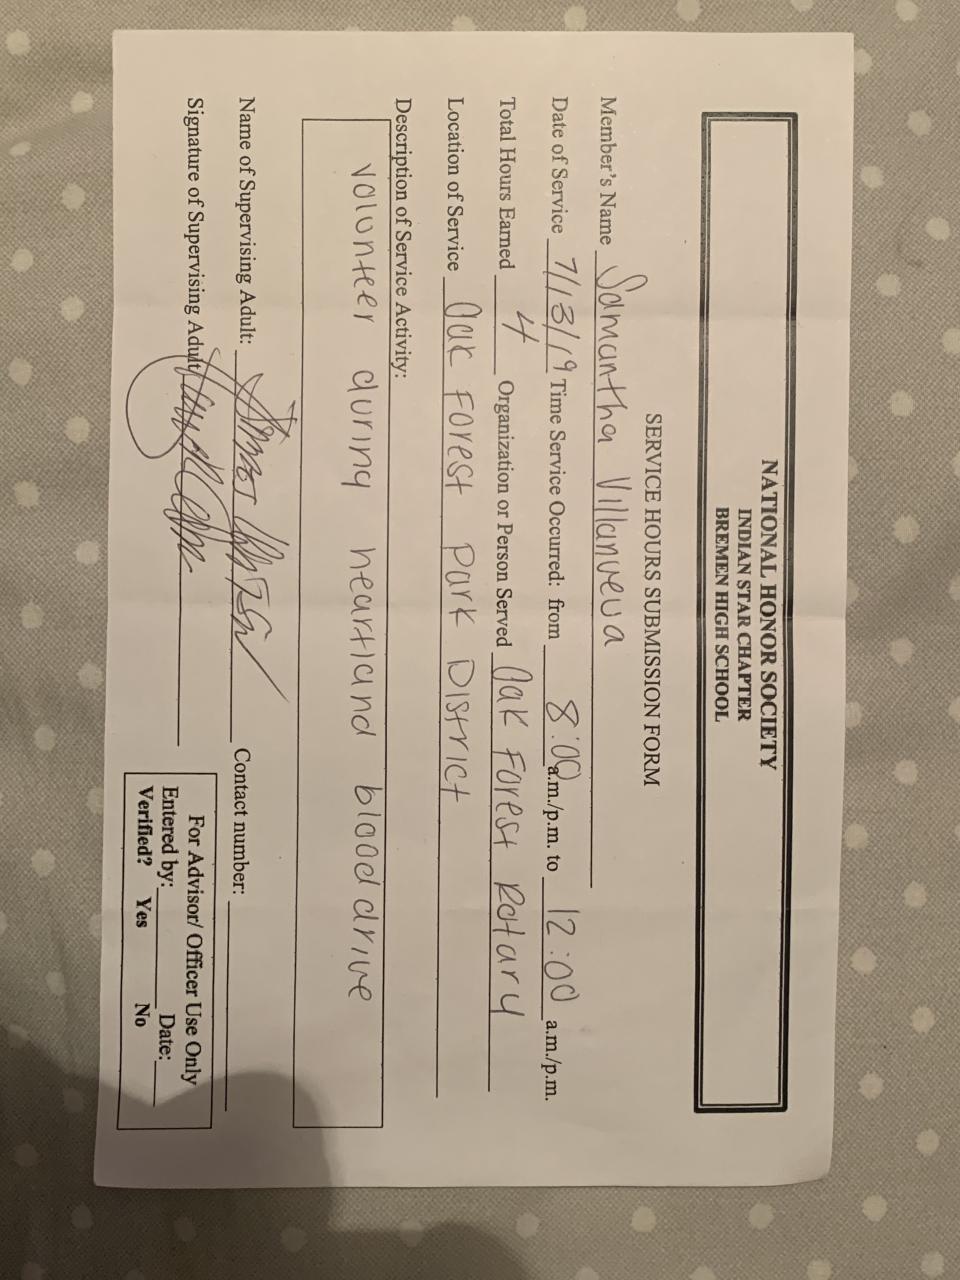 NATIONAL HONOR SOCIETY
INDIAN STAR CHAPTER
BREMEN HIGH SCHOOL
SERVICE HOURS SUBMISSION FORM
Member's Name Samantha Villanueva
Date of Service 7/13/19 Time Service Occurred: from 8:00 a.m./p.m. to 12:00 a.m./p.m.
Total Hours Earned 4 Organization or Person Served Oak Forest Rotary
Location of Service Oak Forest Park District
Description of Service Activity:
volunteer during heartland blood drive
Name of Supervising Adult: Contact number:
Signature of Supervising Adult
For Advisor/ Officer Use Only
Entered by: Date:
Verified? Yes No